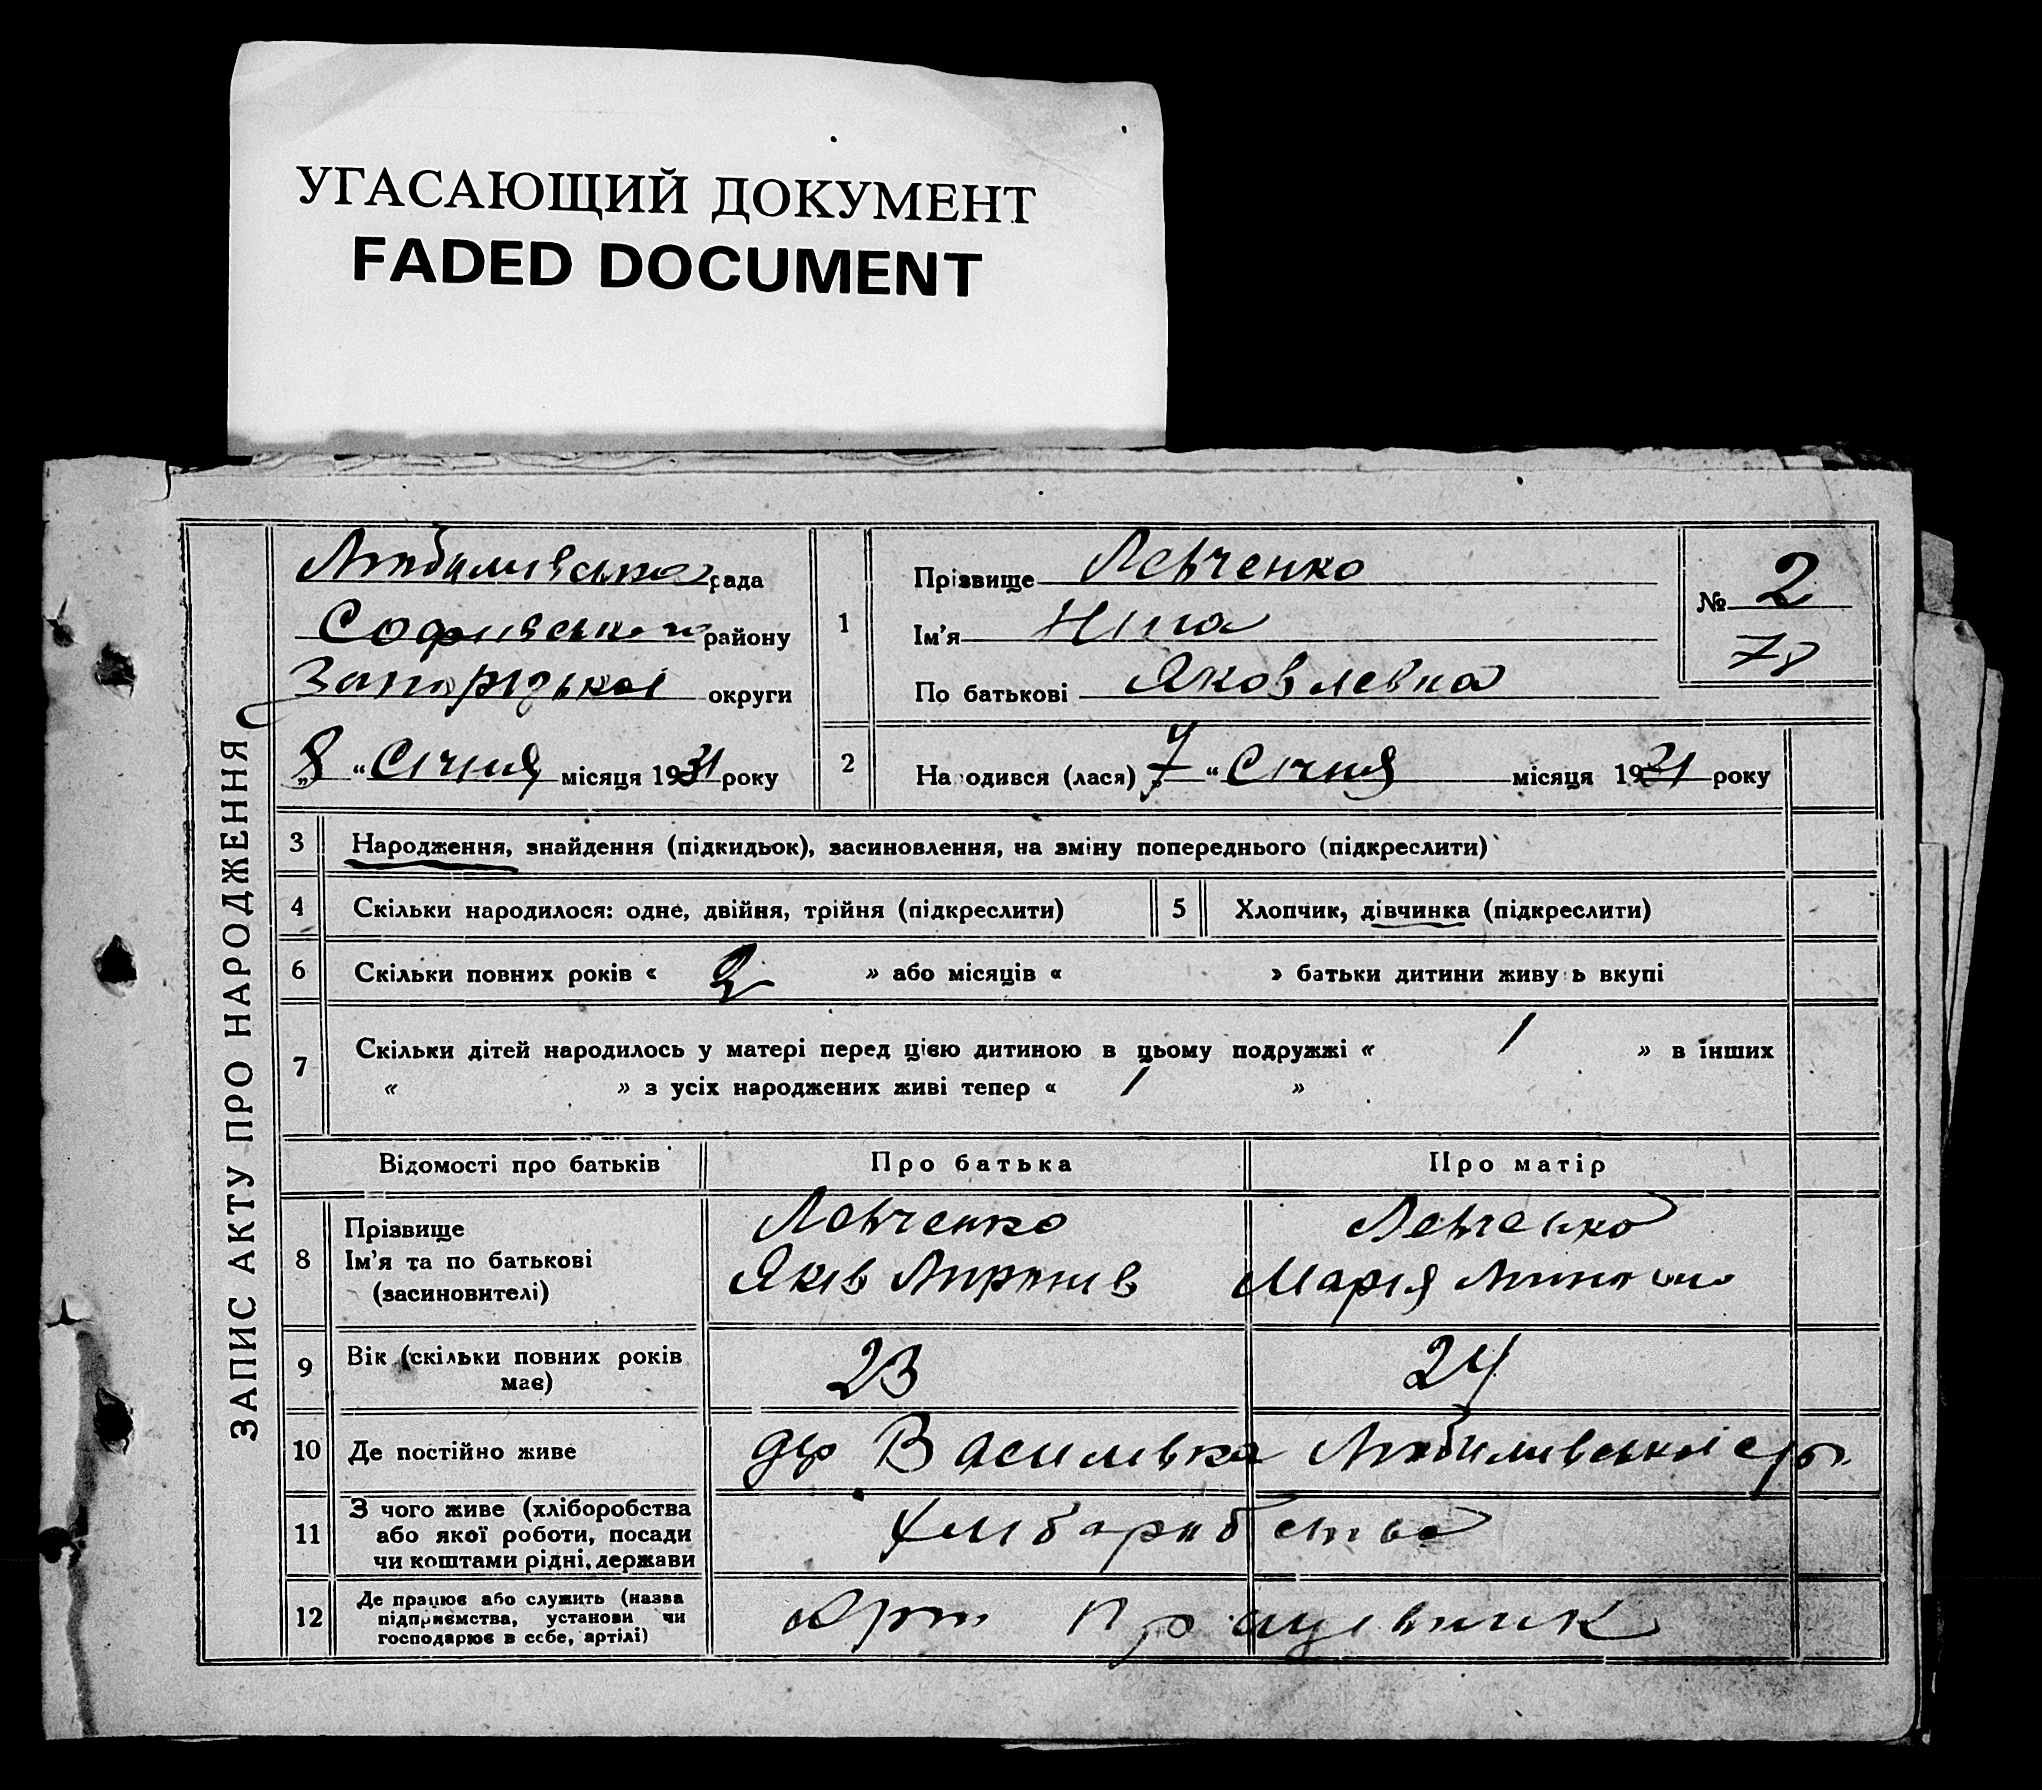 УГАСАЮЩИЙ ДОКУМЕНТ
FADED DOCUMENT
ЗАПИС АКТУ ПРО НАРОДЖЕННЯ
Любимівська рада
Софіївського району
Запорізької округи
„8“ Січня місяця 1931 року
1
Прізвище Левченко
Ім'я Ніна
По батькові Яковлевна
№ 2
78
2
На одився (лася) „ “ Січня місяця 1931 року
3 Народження, знайдення (підкидьок), засиновлення, на зміну попереднього (підкреслити)
4 Скільки народилося: одне, двійня, трійня (підкреслити)
5 Хлопчик, дівчинка (підкреслити)
6 Скільки повних років « 2 » або місяців « » батьки дитини живу ь вкупі
7 Скільки дітей народилось у матері перед цією дитиною в цьому подружжі « 1 » в інших
« » з усіх народжених живі тепер « 1 »
Відомості про батьків Про батька Про матір
8 Прізвище Левченко Левченко
Ім'я та по батькові Яків Марія
(засиновителі)
9 Вік (скільки повних років 23 24
має)
10 Де постійно живе дер Василівка Любимівської с/р
11 З чого живе (хліборобства
або якої роботи, посади
чи коштами рідні, держави
Хліборобство
12 Де працює або служить (назва
підприємства, установи чи
господарює в себе, артілі)
працівник